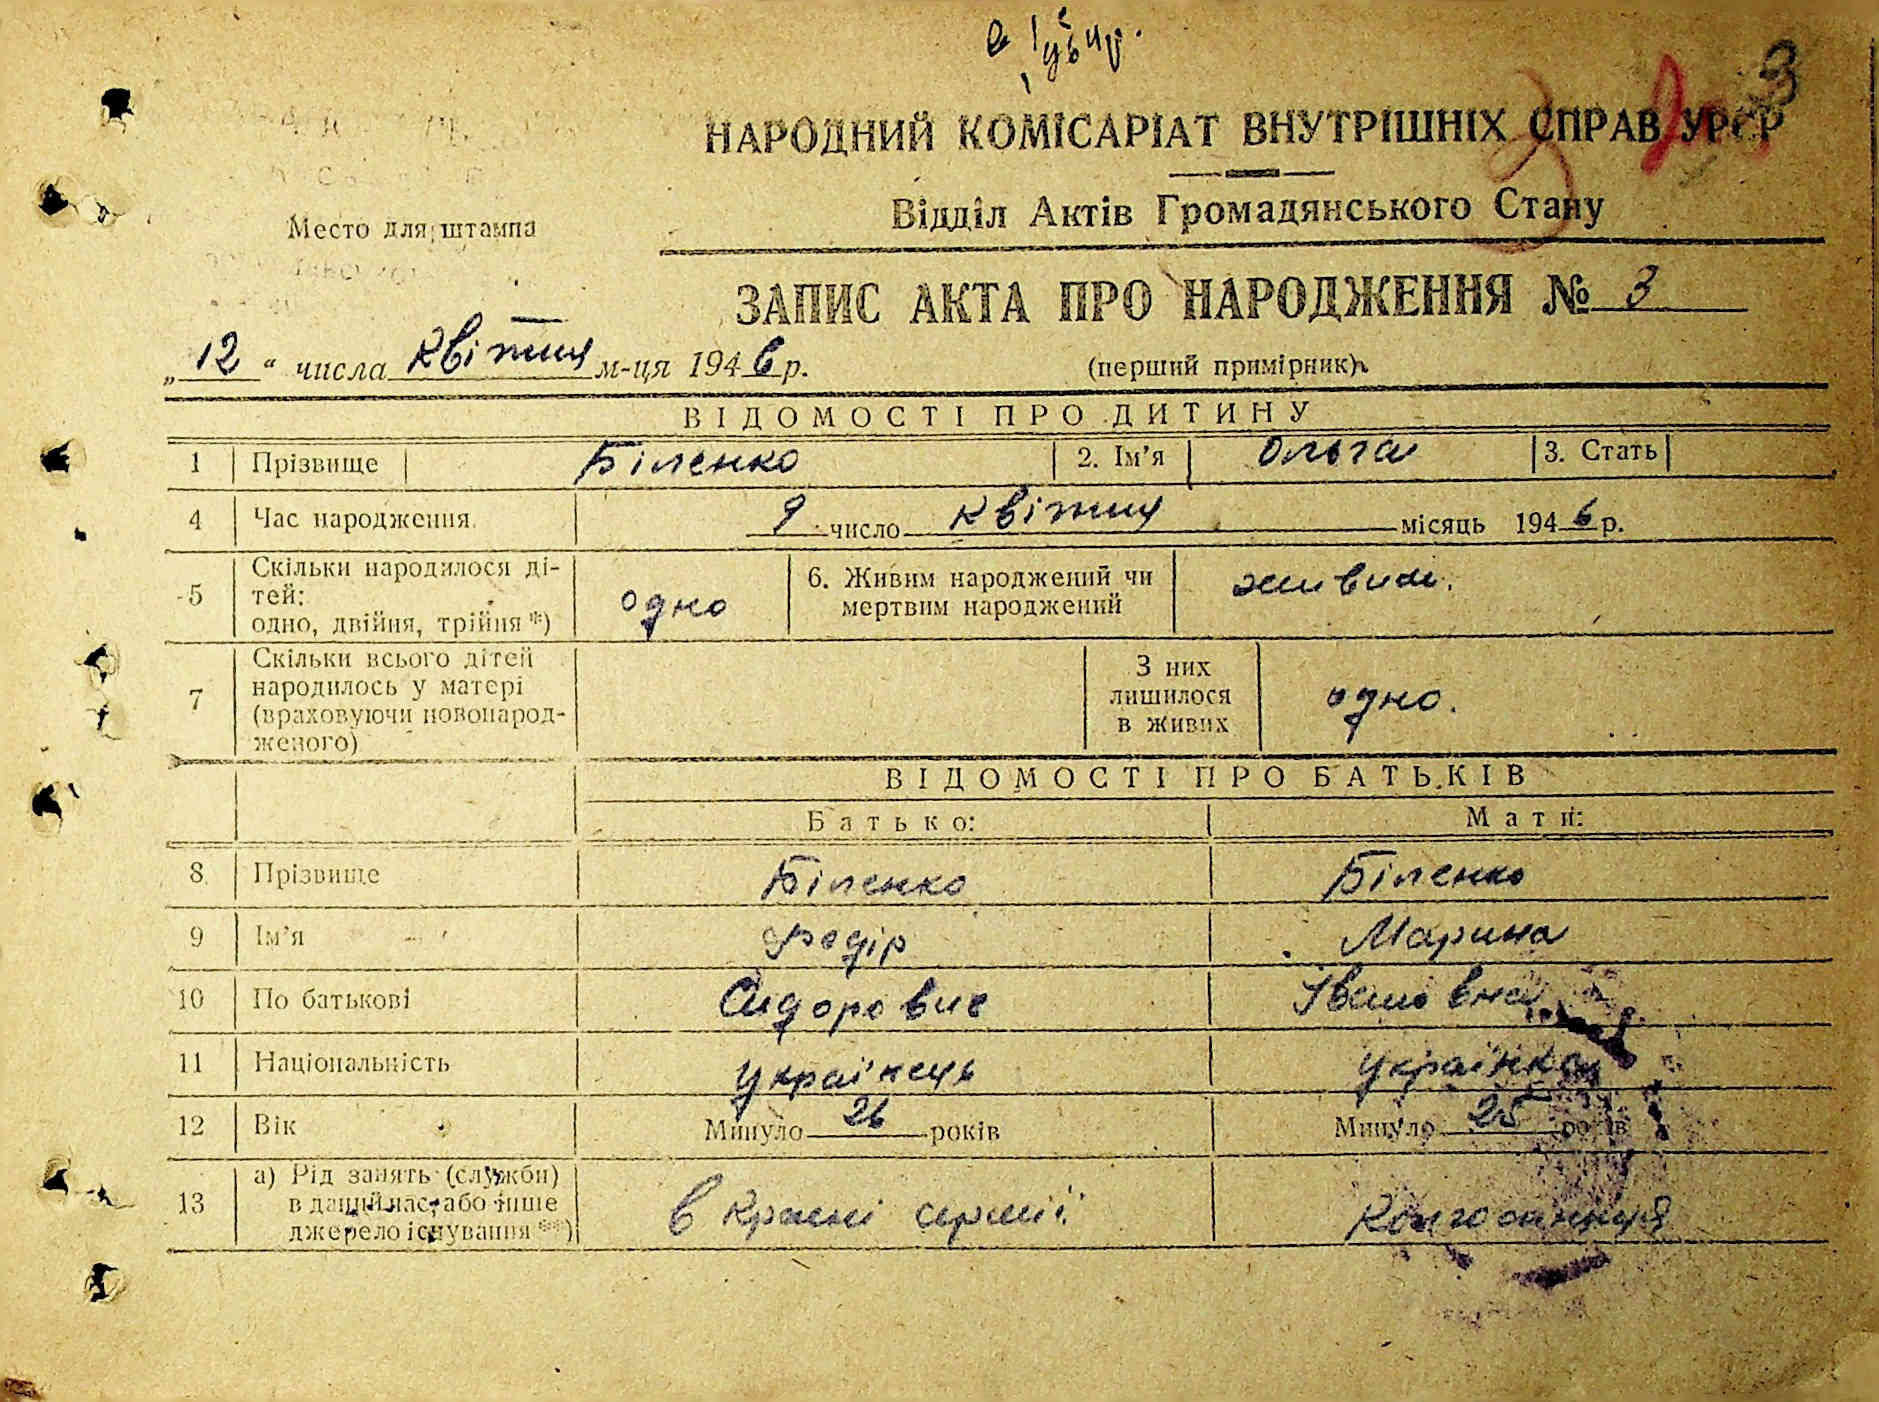 3
НАРОДНИЙ КОМІСАРІАТ ВНУТРІШНІХ СПРАВ УРСР
Відділ Актів Громадянського Стану
Место для штампа
ЗАПИС АКТА ПРО НАРОДЖЕННЯ № 3
„12“ числа квітня м-ця 1946 р.
(перший примірник)
ВІДОМОСТІ ПРО ДИТИНУ
1 Прізвище Біленко 2. Ім’я Ольга 3. Стать
4 Час народження 9 число квітня місяць 1946 р.
5 Скільки народилося ді-
тей:
одно, двійня, трійня *) одно 6. Живим народжений чи
мертвим народжений живим.
7 Скільки всього дітей
народилось у матері
(враховуючи новонарод-
женого)
З них
лишилося
в живих одно.
ВІДОМОСТІ ПРО БАТЬКІВ
Батько: Мати:
8 Прізвище Біленко Біленко
9 Ім’я Федір Марина
10 По батькові Сидорович Івановна
11 Національність українець українка
12 Вік Минуло 26 років Минуло 25 років
13 а) Рід занять (служби)
в даний час, або інше
джерело існування **) в Красні армії Колгоспниця